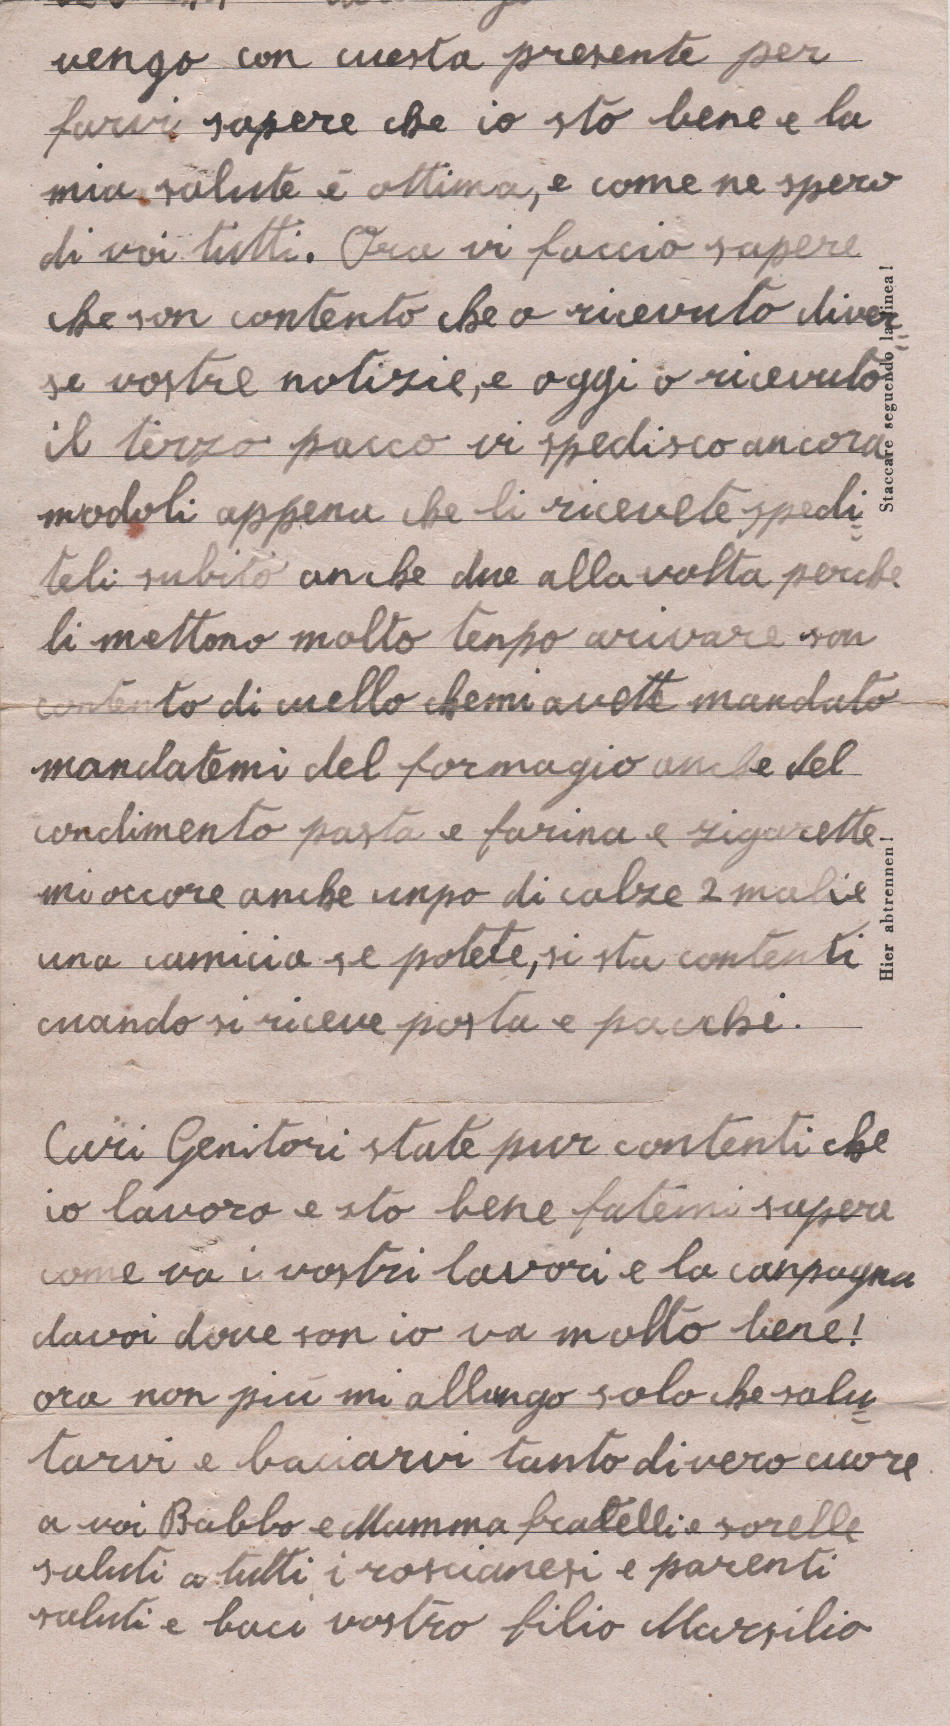 vengo con cuesta presente per
farvi sapere che io sto bene e la
mia salute è ottima, e come ne spero
di voi tutti. Ora vi faccio sapere
che son contento che o ricevuto diver
se vostre notizie, e oggi o ricevuto
il terzo pacco vi spedisco ancora
modoli appena che li ricevete spedi
teli subito anche due alla volta perche
li mettono molto tenpo arivare son
contento di cuello che mi avete mandato
mandatemi del formagio anche del
condimento pasta e farina e zigarette
mi occore anche unpo di calze 2 malie
una camicia se potete, si sta contenti
cuando si riceve posta e pacchi.
Cari Genitori state pur contenti che
io lavoro e sto bene fatemi sapere
come va i vostri lavori e la canpagna
davoi dove son io va molto bene!
ora non più mi allungo solo che salu
tarvi e baciarvi tanto di vero cuore
a voi Babbo e Mamma fratelli e sorelle
saluti a tutti i roscianesi e parenti
saluti e baci vostro filio Marsilio
Staccare seguendo la linea!
Hier abtrennen!